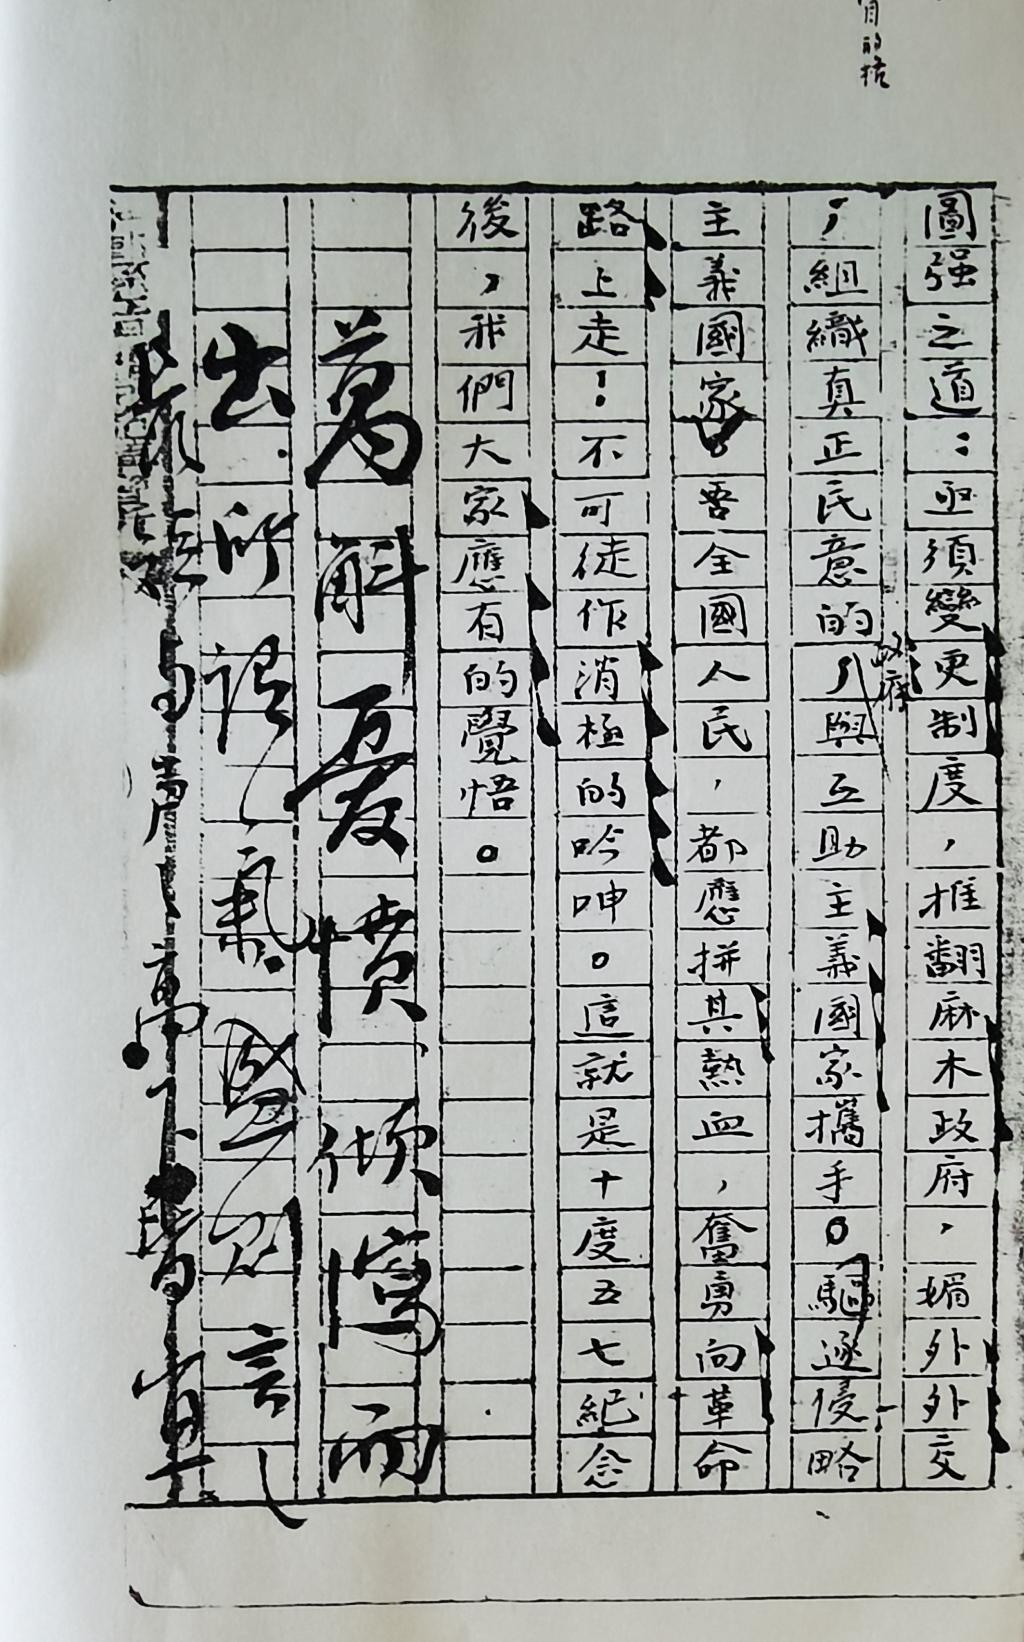 圖强之道：亟須變更制度，推翻麻木政府，媚外外交
，組織真正民意的政府，與互助主義國家攜手。驅逐侵略
主義國家。吾全國人民，都應拼其熱血，奮勇向革命
路上走！不可徒作消極的吟呻。這就是十度五七紀念
後，我們大家應有的覺悟。
萬斛憂憤傾瀉而
出所謂氣盛則言之
長短與聲之高下皆宜